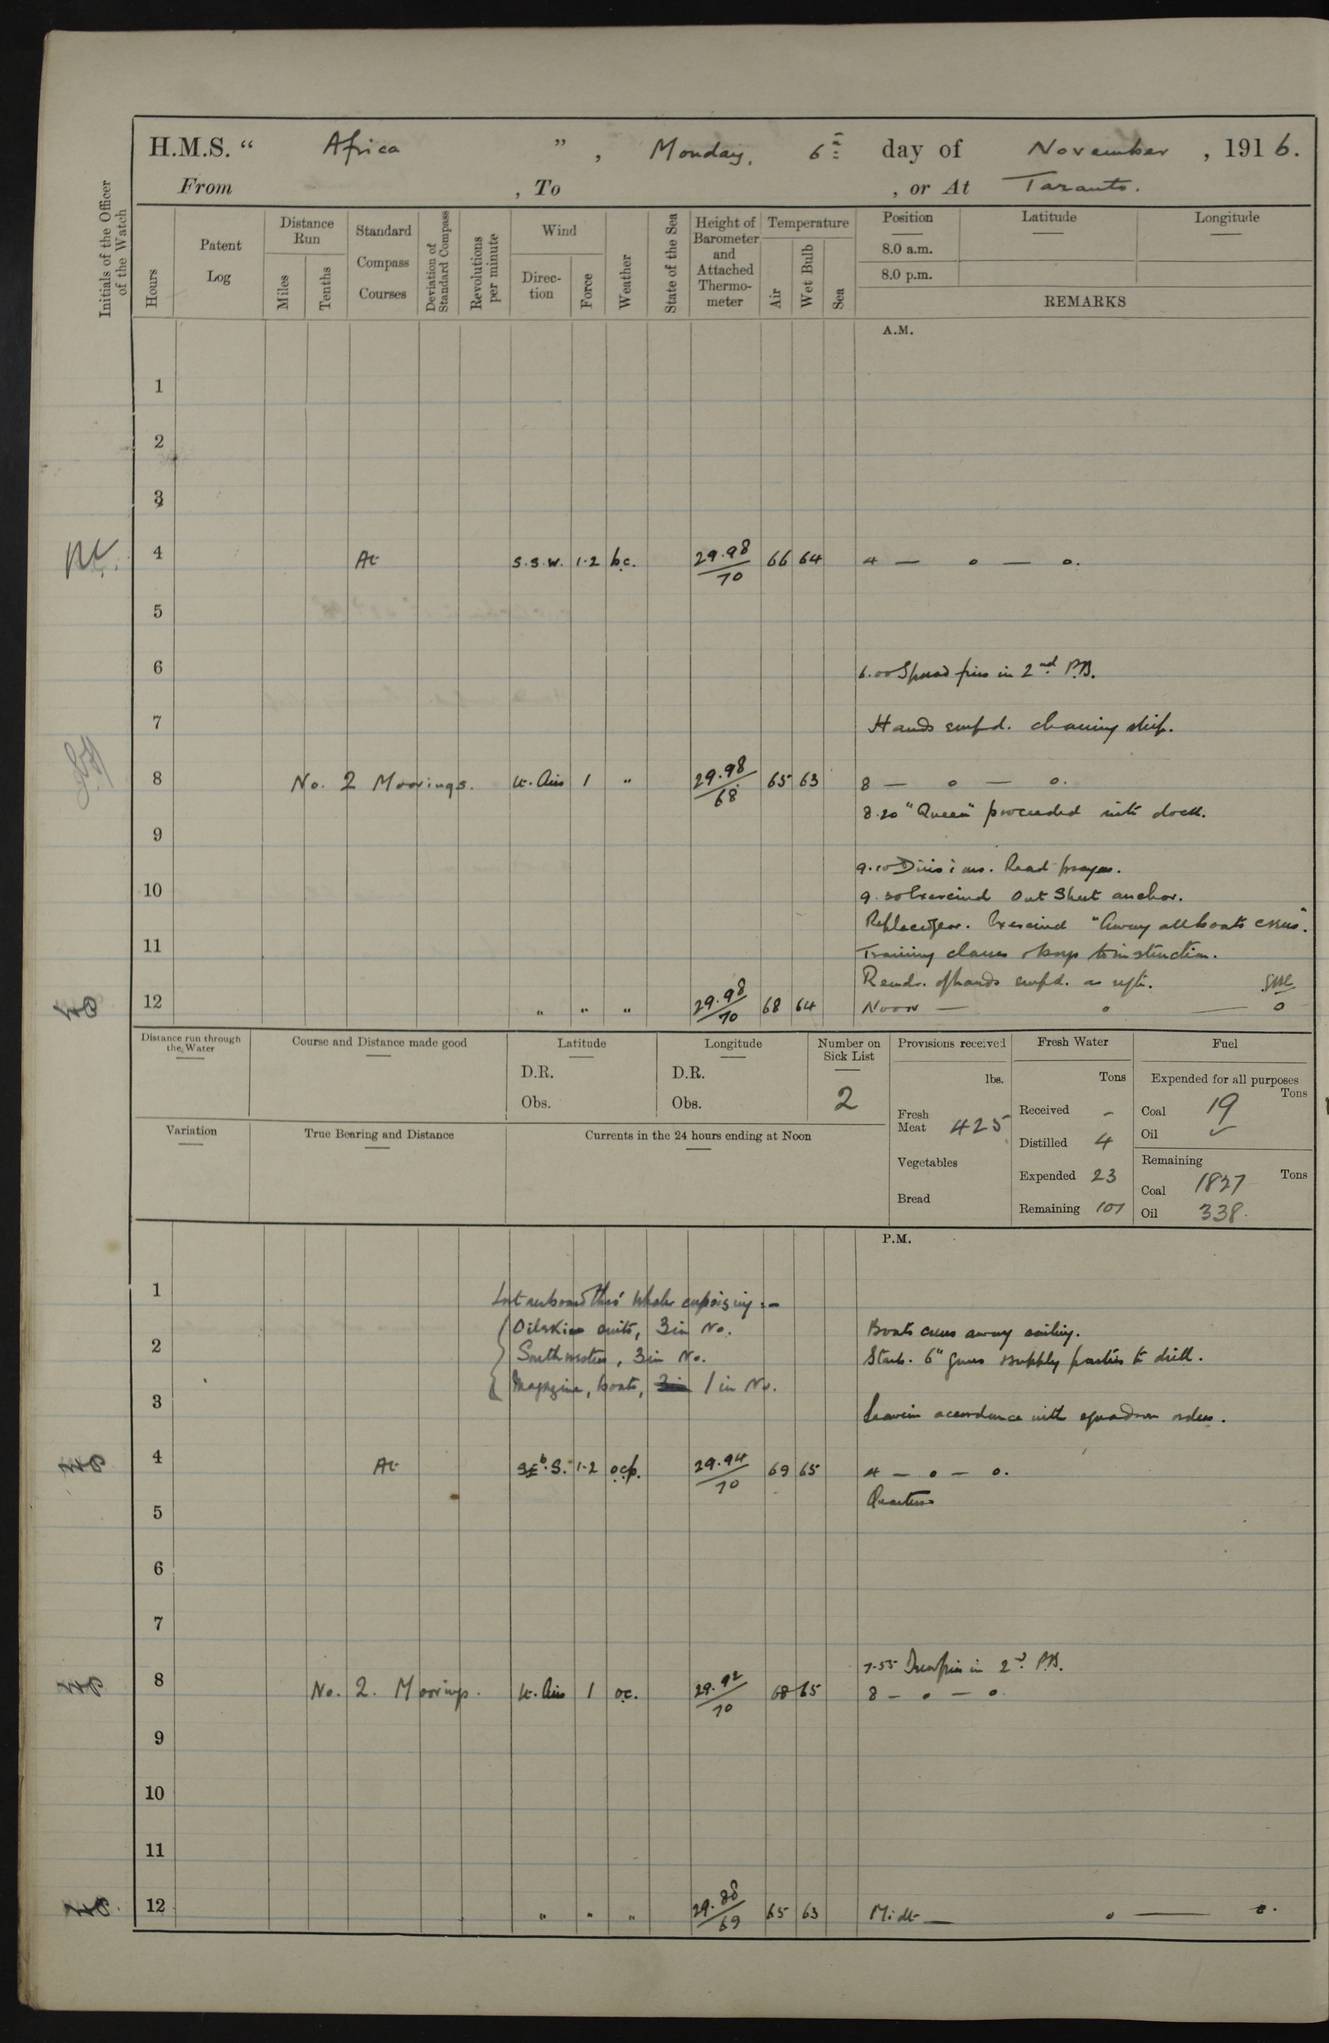 H.M.S. “ Africa ”, Monday, 6th day of November, 1916.
From , To , or At Taranto.
Initials of the Officer of the Watch
Hours
Patent Log
Distance Run
Miles
Tenths
Standard Compass Courses
Deviation of Standard Compass
Revolutions per minute
Wind
Direction
Force
Weather
State of the Sea
Height of Barometer and Attached Thermometer
Temperature
Air
Wet Bulb
Sea
Position Latitude Longitude
8.0 a.m.
8.0 p.m.
REMARKS
A.M.
1
2
3
4 At S.S.W. 1·2 b.c. 29.98/70 66 64 4 — o — o.
5
6 6.00 Spread fires in 2nd P.B.
7 Hands empd. cleaning ship.
8 No. 2 Moorings. Lt. Airs 1 " 29.98/68 65 63 8 — o — o.
8.20 "Queen" proceeded into dock.
9
9.10 Divisions. Read prayers.
10 9.30 Exercised Out Sheet anchor.
Replaced gear. Exercised "Away all boats crews".
11 Training classes & boys to instruction.
Remdr. of hands empd. as reqte.
12 " " " 29.98/70 68 64 Noon — o — o
Distance run through the Water
Course and Distance made good
Latitude
D.R.
Obs.
Longitude
D.R.
Obs.
Number on Sick List
2
Provisions received
lbs.
Fresh Meat 425
Vegetables
Bread
Fresh Water
Tons
Received -
Distilled 4
Expended 23
Remaining 101
Fuel
Expended for all purposes
Tons
Coal 19
Oil ✓
Remaining
Tons
Coal 1827
Oil 338.
Variation
True Bearing and Distance
Currents in the 24 hours ending at Noon
P.M.
1
Lost overboard thro' Whaler capsizing :-
Oilskin suits, 3 in No. Boats crews away sailing.
2 Southwesters, 3 in No. Starb. 6" guns supply parties to drill.
Magazine, boats, 1 in No.
3
Leave in accordance with squadron orders.
4 At SEb.S. 1·2 ocp. 29.94/70 69 65 4 — o — o.
Quarters
5
6
7
7.55 Drew fires in 2nd P.B.
8 No. 2. Moorings. Lt. Airs 1 oc. 29.92/70 68 65 8 — o — o
9
10
11
12 " " " 29.88/69 65 63 Midt — o — o.